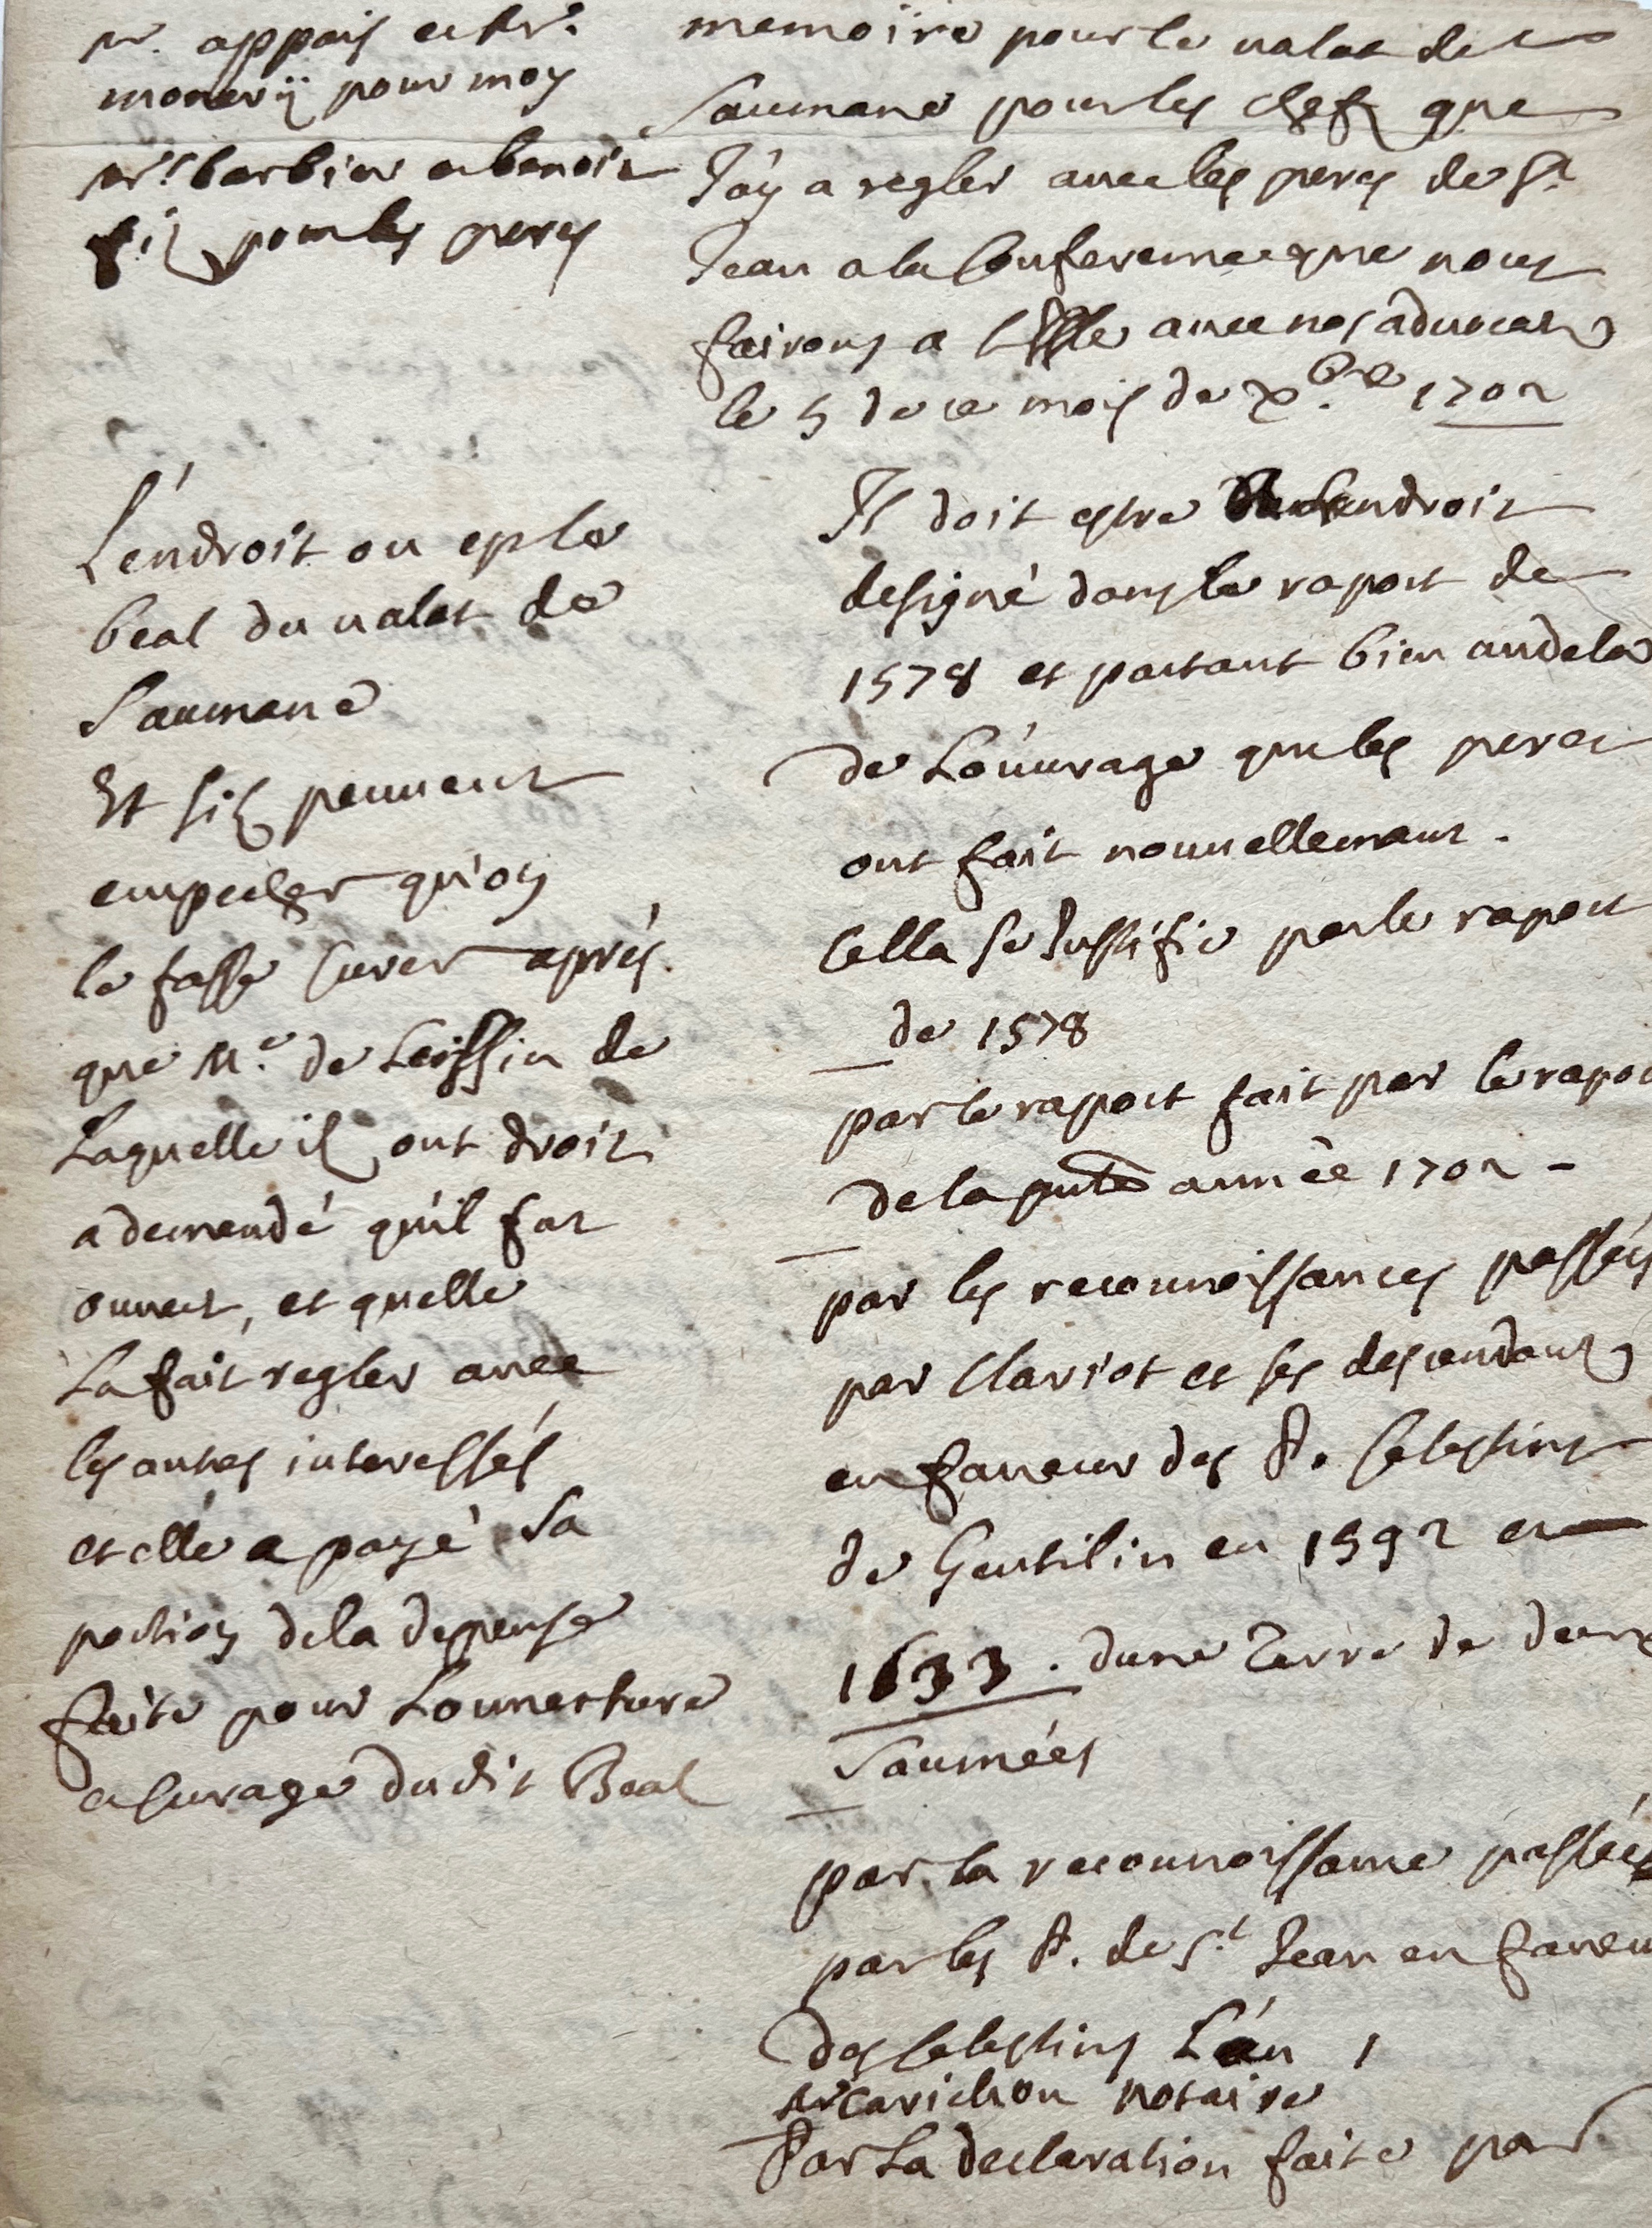 mr. appais et mr.
monerij pour moy
mrs. barbier et benoit
pour les peres
memoire pour le valat de
Saumane pour les chefs que
J'ay a regler avec les peres de St.
Jean a la Conference que nous
fairons a l'Isle avec nos advocats
le 5 de ce mois de xbre 1702
L'endroit ou est le
beal du valat de
Saumane
Et sils peuvent
empecher qu'on
le fasse curer après
que Me. de de
Laquelle ils ont droit
a demandé qu'il fut
ouvert, et quelle
La fait regler avec
les autres interessés
et elle a payé sa
portion de la depense
faite pour Louverture
et curage dudit Beal
Il doit estre endroit
designé dans le raport de
1578 et partant bien audela
de L'ouvrage que les peres
ont fait nouvellemant.
Cella se Justifie par le raport
de 1578
par le raport fait par le rapor
de la pnte année 1702 -
par les reconnoissances passées
par Clariot et ses descendans
en faveur des P. Celestins
de Gentilin en 1592 et
1633. dune Terre de deux
Saumées
par la reconnoissance passée
par les P. de St. Jean en faveur
des Celestins L'an 1
mr Carichon notaire
Par La declaration faite par